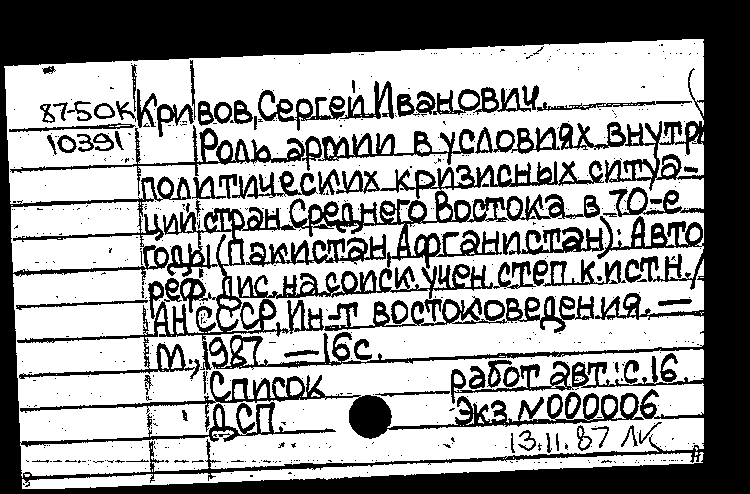 87-5ОК Кривов, Сергей Иванович.
10391 Роль армии в условиях внутри
политических кризисных ситуа-
ций стран Среднего Востока в 70-е
годы (Пакистан, Афганистан): Авто
реф. дис. на соиск. учен. степ. к.ист.н. /
АН СССР, Ин-т востоковедения. —
М., 1987. — 16 с.
Список работ авт.: с. 16.
ДСП. Экз. N000006.
13.11.87 ЛК